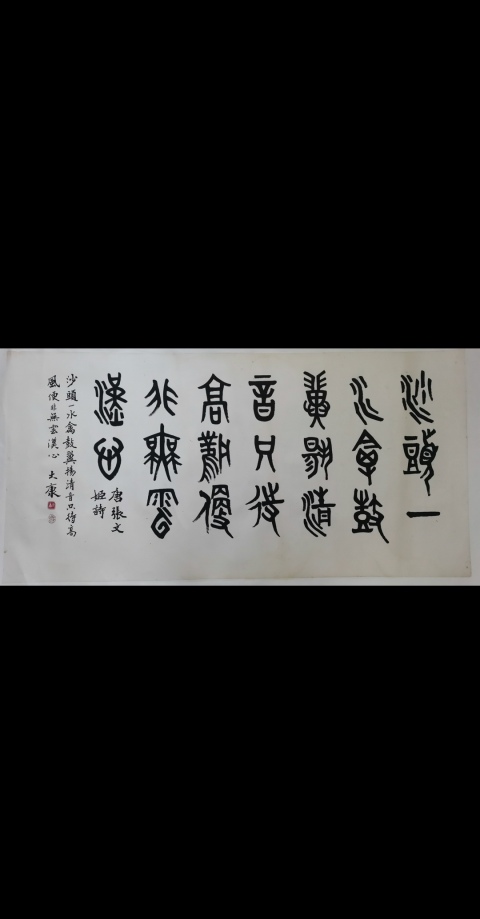 沙頭一
水禽鼓
翼揚清
音只待
高風便
非無雲
漢心
唐張文
姬詩
沙頭一水禽鼓翼揚清音只待高
風便非無雲漢心 大康